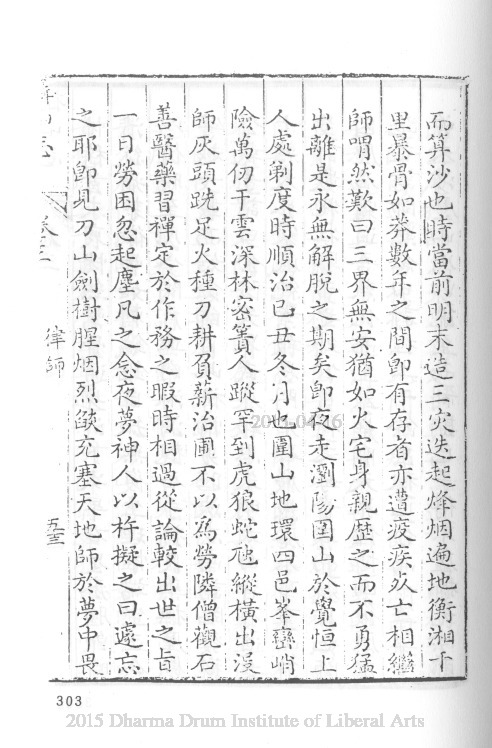 而算沙也時當前明末造三灾迭起烽烟遍地衡湘千
里暴骨如莽數年之間卽有存者亦遭疫疾死亡相繼
師喟然歎曰三界無安猶如火宅身親歷之而不勇猛
出離是永無解脫之期矣卽夜走瀏陽圍山於覺恒上
人處剃度時順治己丑冬月也圍山地環四邑峯巒峭
險萬仞干雲深林密箐人蹤罕到虎狼蛇虺縱橫出沒
師灰頭跣足火種刀耕負薪治圃不以為勞隣僧觀石
善醫藥習禪定於作務之暇時相過從論較出世之旨
一日勞困忽起塵凡之念夜夢神人以杵擬之曰遽忘
之耶卽見刀山劍樹腥烟烈燄充塞天地師於夢中畏
卷三
律師
五三
303
2015 Dharma Drum Institute of Liberal Arts